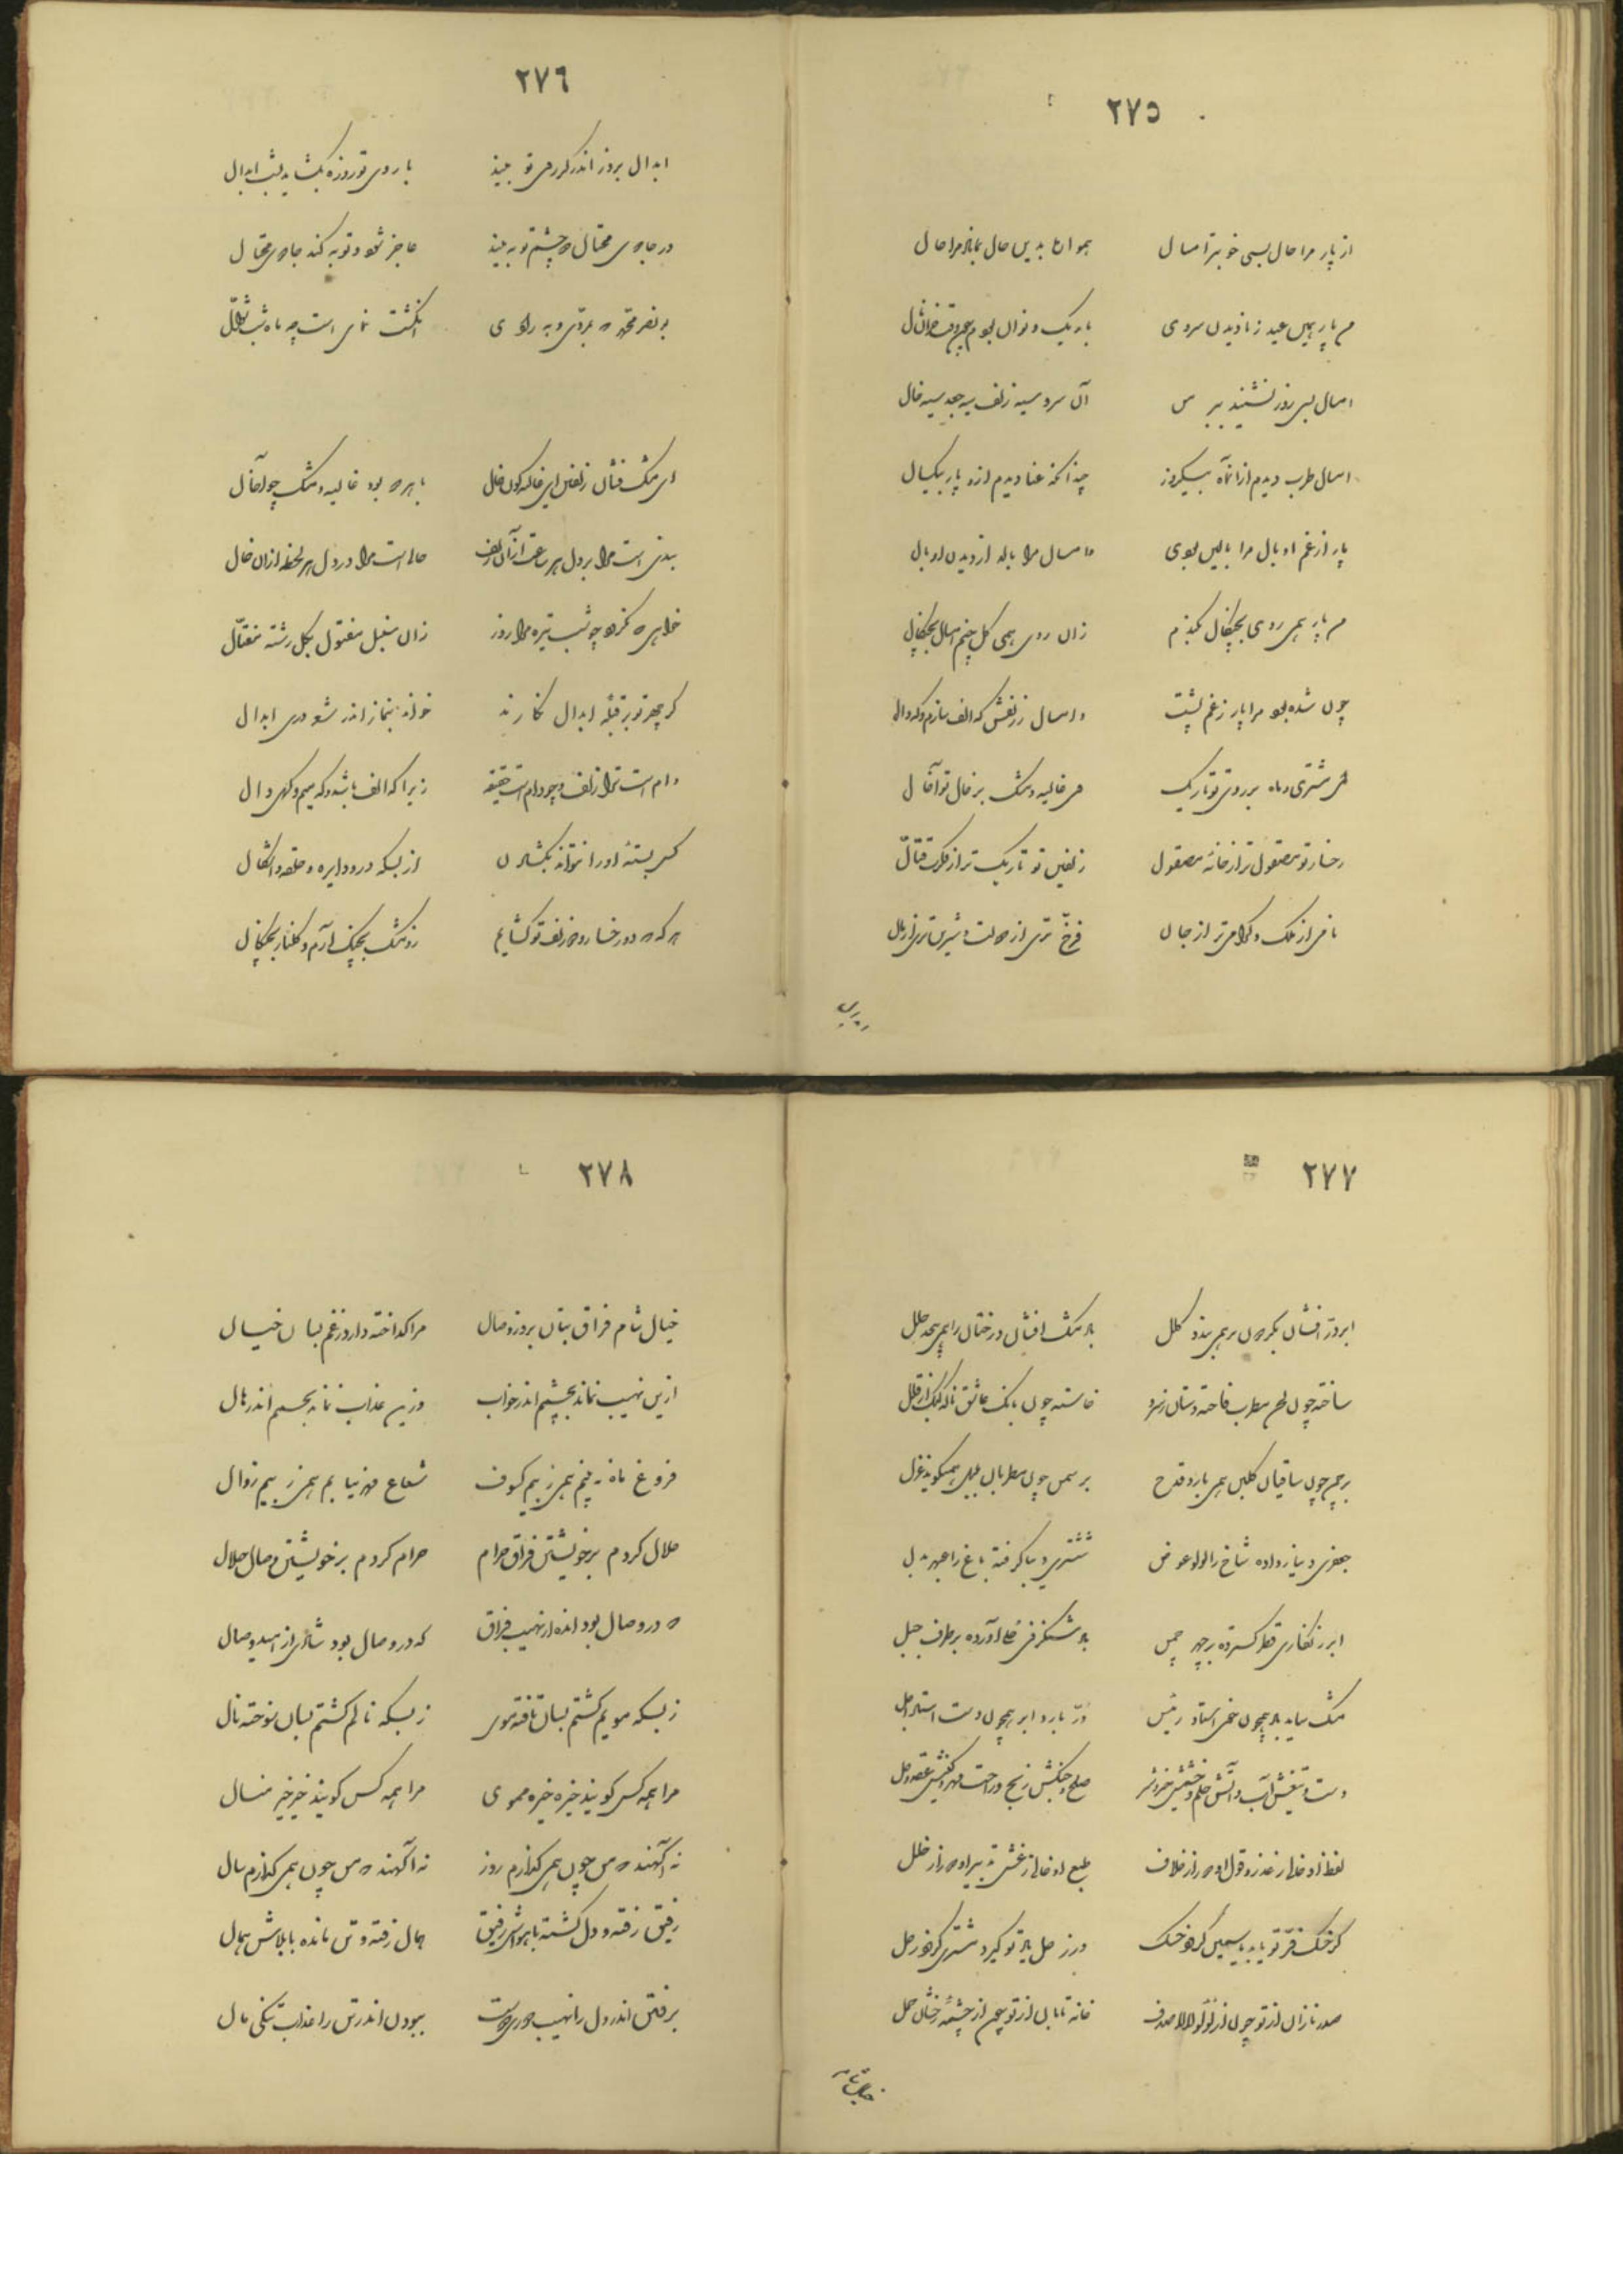 ٢٧٥
از پار مرا حال بسی خوبتر امسال همواره بدین حال بماناد مرا حال
من پار بهمین عید ز نادیدن سروی باریک و نوان بودم همچون
امسال بس روز نشیند ببر من آن سرو سیه زلف سیه جعد سیه خال
امسال طرب دیدم ازان ماه بیکروز چندانکه عنا دیدم ازو پار بیکسال
پار از غم او بال مرا بالین بودی و امسال مرا باله از دیدن او بال
من پار همی روی بچنگال بکندم زان روی همی گل چنم امسال بچنگال
چون شده بود مرا پار ز غم پشت و امسال ز زلفش که الف سازم و که دال
ای مشتری و ماه بر روی تو تاریک وی غالیه و مشک بر خال تو آخال
رخسار تو مصقول تر از خانه مصقول زلفین تو تاریک تر از فکرت قتال
نامی تر از ملک و گرامی تر از جان فرخ تری از دولت و شیرین تری از مال
٢٧٦
ابدال بروز اندر گر روی تو بیند با روی تو روزه بگشاید بشب ابدال
در جادوی محتال دو چشم تو به بیند عاجز شود و توبه کند جادوی محتال
بونصر محمد که بمردی و به رادی انگشت نمای است چو ماه شب شوال
ای مشک فشان زلفین ای غالیه گون خال با هر دو بود غالیه و مشک چو آخال
بندی است مرا بر دل هر ساعت ازان زلف حالی است مرا در دل هر لحظه ازان خال
خواهی که نگردد چو شب تیره مرا روز زان سنبل مفتول بگل رشته مفتال
گر چهر تو بر قبله ابدال نگارند خواند بنماز اندر شعر دری ابدال
دام است ترا زلف و چو دام است حقیقه زیرا که الف باشد و که میم و گهی دال
کس بسته او را نتواند بگشادن از بسکه درو دایره و حلقه و اشکال
هر که که دو رخسار و دو زلف تو گشایم زو مشک بچنگ آرم و گلنار بچنگال
٢٧٧
ابر در افشان بگردون بر همی بندد کلل باد مشک افشان درختان را همی بخشد حلل
ساخته چون لحن مطرب فاخته دستان ز سرو خاسته چون بانگ عاشق ناله کبک از قلل
بر چمن چون ساقیان گلبن همی بارد قدح بر سمن چون مطربان بلبل همیگوید غزل
جعفری دینار داده شاخ را لؤلؤ عوض ششتری دیبا گرفته باغ را عبهر بدل
ابر زنگاری قطار گسترده بر چهر چمن باد شنگرفی آورده بر طرف جبل
مشک ساید باد همچون خوی استاد رئیس در بارد ابر همچون دست استاد اجل
دست و تیغش آب و آتش حلم و خشمش خیر و شر صلح و جنگش رنج و راحت مهر و کینش عقد و حل
لفظ او خالی ز غدر و قول او دور از خلاف طبع او خالی ز غش تدبیر او دور از خلل
گر خسک فر تو یابد یاسمین گردد خسک ور زحل یاد تو گیرد مشتری گردد زحل
صدر نازان از تو چون از لؤلؤ لالا صدف خانه تابان از تو همچون از چشمه رخشان حمل
٢٧٨
خیال شام فراق بتان بروز وصال مرا گداخته دارد ز غم بسان خیال
ازین نهیب نماند بچشم اندر خواب وزین عذاب نماند بجسم اندر هال
فروغ ماه نه بینم همی ز بیم کسوف شعاع مهر نیابم همی ز بیم زوال
حلال کردم بر خویشتن فراق حرام حرام کردم بر خویشتن وصال حلال
که در وصال بود انده از نهیب فراق که در وصال بود شادی از امید وصال
ز بسکه مویم گشتم بسان تافته موی ز بسکه نالم گشتم بسان سوخته نال
مرا همه کس گویند خیره خیره مموی مرا همه کس گویند خیر خیر منال
نه آگهند که من چون همی گذارم روز نه آگهند که من چون همی گذارم سال
رفیق رفته و دل گشته با هواش رفیق همال رفته و تن مانده با بلاش همال
برفتن اندر دل را نهیب دوری دوست ببودن اندر تن را عذاب تنگی مال
خیال شام